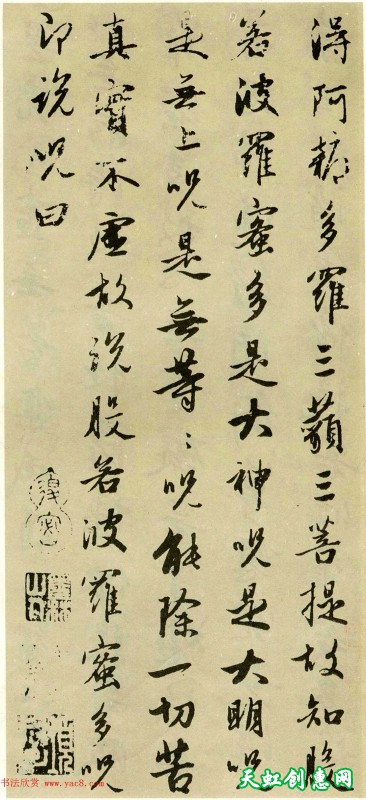 得阿耨多羅三藐三菩提故知般
若波羅蜜多是大神呪是大明呪
是無上呪是無等々呪能除一切苦
真實不虛故說般若波羅蜜多呪
即說呪曰
书法欣赏 www.yac8.com
天虹创意网